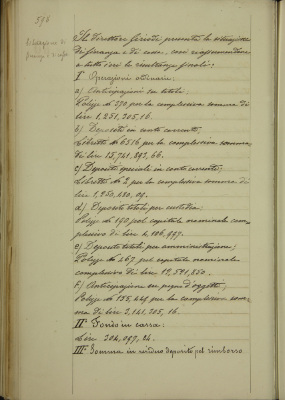 596
Situazione di
finanza e di cassa
Il Direttore furiere presenta la situazione
di finanza e di cassa, così riassumendone
a tutto ieri le risultanze finali:
I° Operazioni ordinarie.
a) Anticipazioni su titoli;
Polizze N° 270 per la complessiva somma di
lire 1,251,205,16.
b) Depositi in conto corrente;
Libretti N° 6516 per la complessiva somma
di lire 15,741,393,66.
c) Depositi speciali in conto corrente;
Libretti N° 2 per la complessiva somma di
lire
d) Depositi titoli per custodia;
Polizze N° 190 pel capitale nominale com-
plessivo di lire 4,106,997.
e) Depositi titoli per amministrazione;
Polizze N° 467 pel capitale nominale
complessivo di lire 12,591,850.
f) Anticipazioni su pegni d'oggetti;
Polizze N° 155,424 per la complessiva som-
ma di lire 2,141,205,16.
II° Fondo in cassa.
Lire 304,097,24.
III° Somma in residuo depositi pel rimborso